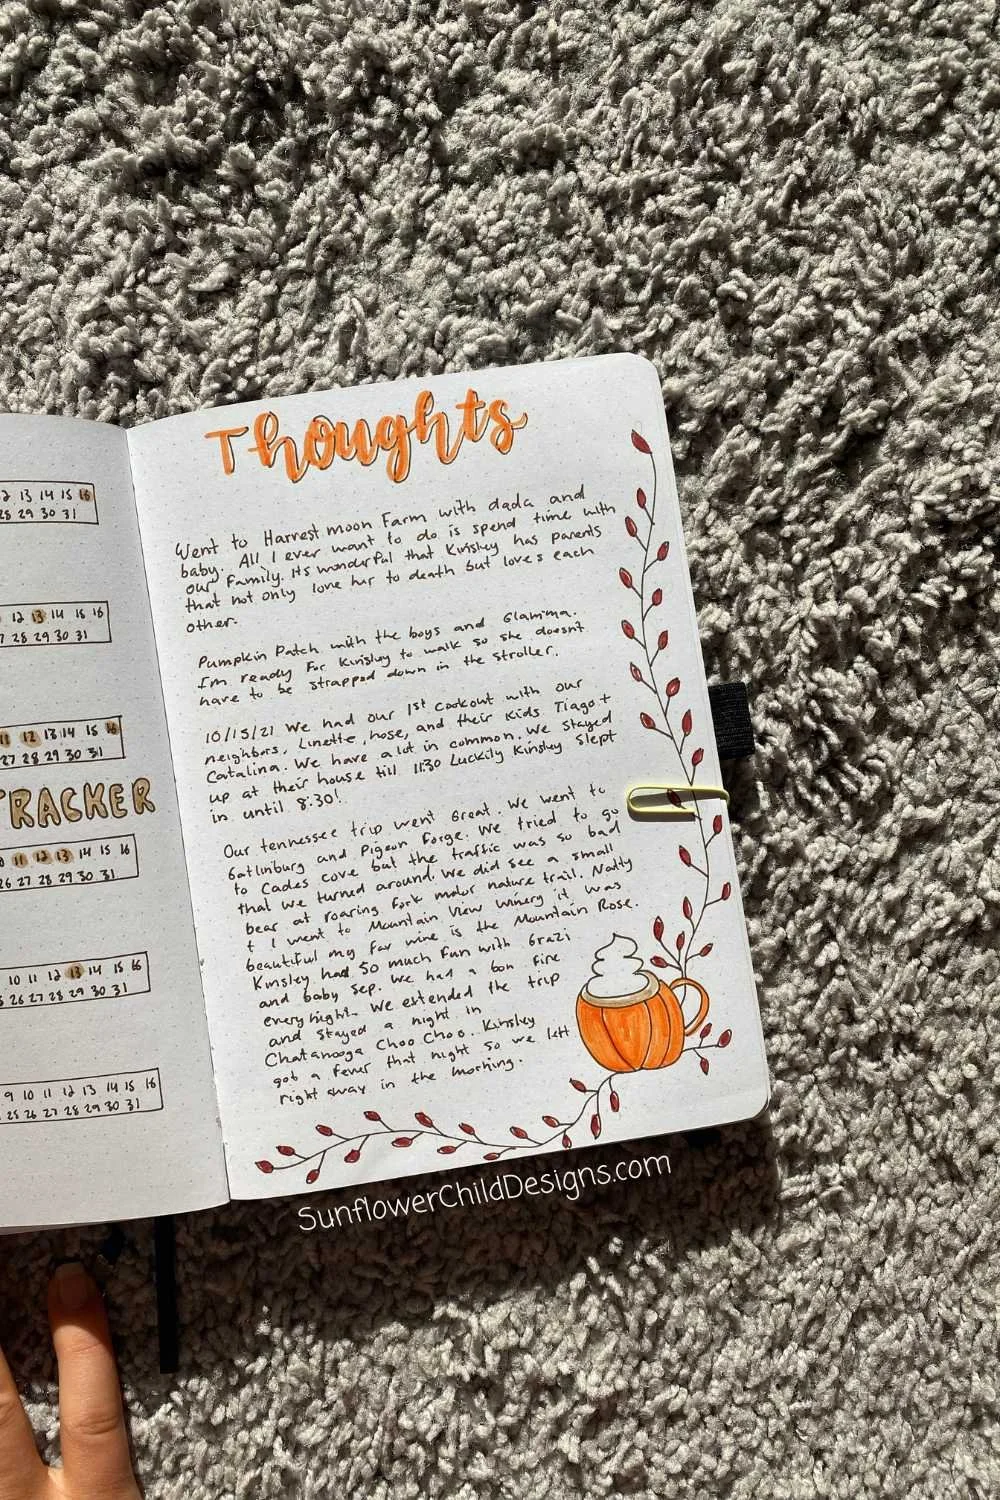 12 13 14 15 16
28 29 30 31
12 13 14 15 16
27 28 29 30 31
11 12 13 14 15 16
27 28 29 30 31
TRACKER
11 12 13 14 15 16
26 27 28 29 30 31
10 11 12 13 14 15 16
25 26 27 28 29 30 31
9 10 11 12 13 14 15 16
25 26 27 28 29 30 31
Thoughts
Went to Harvest moon Farm with dada and
baby. All I ever want to do is spend time with
our family. Its wonderful that Kinsley has parents
that not only love her to death but loves each
other.
Pumpkin Patch with the boys and Glamma.
I'm ready for Kinsley to walk so she doesn't
have to be strapped down in the stroller.
10/15/21 We had our 1st cookout with our
neighbors. Linette, hose, and their kids Tiago +
Catalina. We have a lot in common. We stayed
up at their house till 11:30 Luckily Kinsley slept
in until 8:30!
Our tennessee trip went great. We went to
Gatlinburg and Pigeon Forge. We tried to go
to Cades cove but the traffic was so bad
that we turned around. We did see a small
bear at roaring fork motor nature trail. Natty
+ I went to Mountain View Winery it was
beautiful my fav wine is the Mountain Rose.
Kinsley had so much fun with Grazi
and baby Sep. We had a bon fire
every night. We extended the trip
and stayed a night in
Chatanooga Choo Choo. Kinsley
got a fever that night so we left
right away in the morning.
SunflowerChildDesigns.com